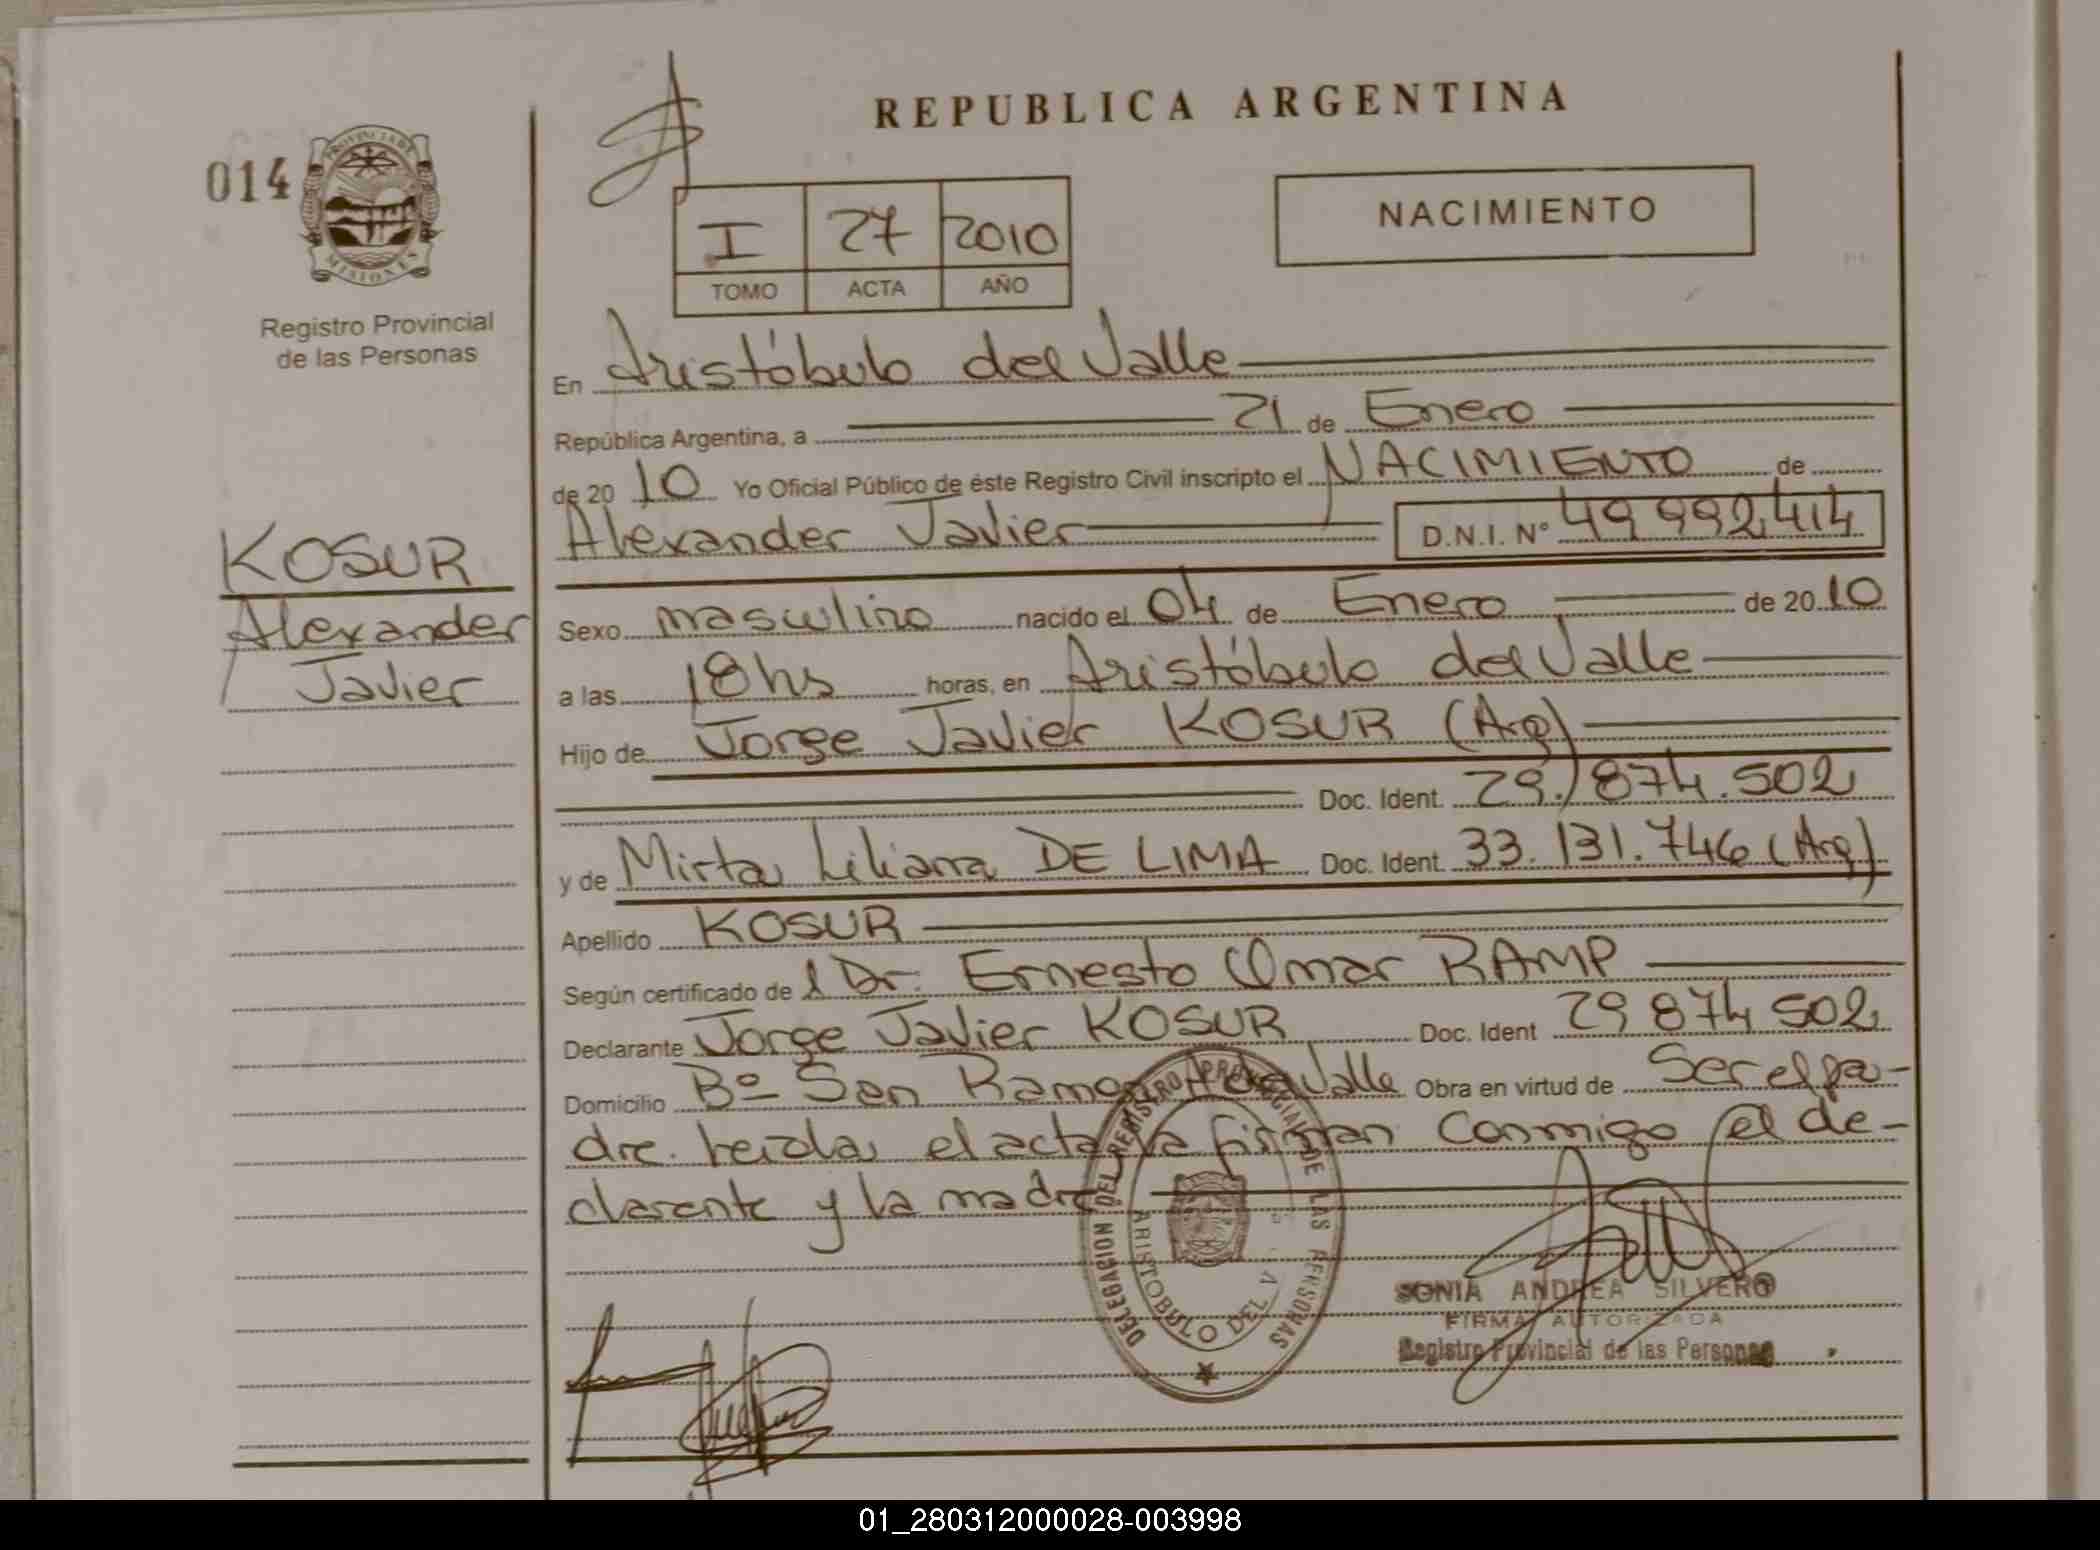 REPUBLICA ARGENTINA
014
PROVINCIA DE
MISIONES
Registro Provincial
de las Personas
I 27 2010
TOMO ACTA AÑO
NACIMIENTO
KOSUR
Alexander
Javier
En Aristóbulo del Valle
República Argentina, a 21 de Enero
de 20 10 Yo Oficial Público de éste Registro Civil inscripto el NACIMIENTO de
Alexander Javier D.N.I. Nº 49 992 414
Sexo masculino nacido el 04 de Enero de 20 10
a las 18hs horas, en Aristóbulo del Valle
Hijo de Jorge Javier KOSUR (Arg)
Doc. Ident. 29.874.502
y de Mirta Liliana DE LIMA Doc. Ident. 33.131.746 (Arg)
Apellido KOSUR
Según certificado de l Dr. Ernesto Omar RAMP
Declarante Jorge Javier KOSUR Doc. Ident 29 874 502
Domicilio Bº San Ramon A del Valle Obra en virtud de Ser el pa-
dre. Leida el acta la firman conmigo el de-
clarante y la madre
DELEGACION DEL REGISTRO PROVINCIAL DE LAS PERSONAS
ARISTOBULO DEL V
SONIA ANDREA SILVERO
FIRMA AUTORIZADA
Registro Provincial de las Personas
01_280312000028-003998